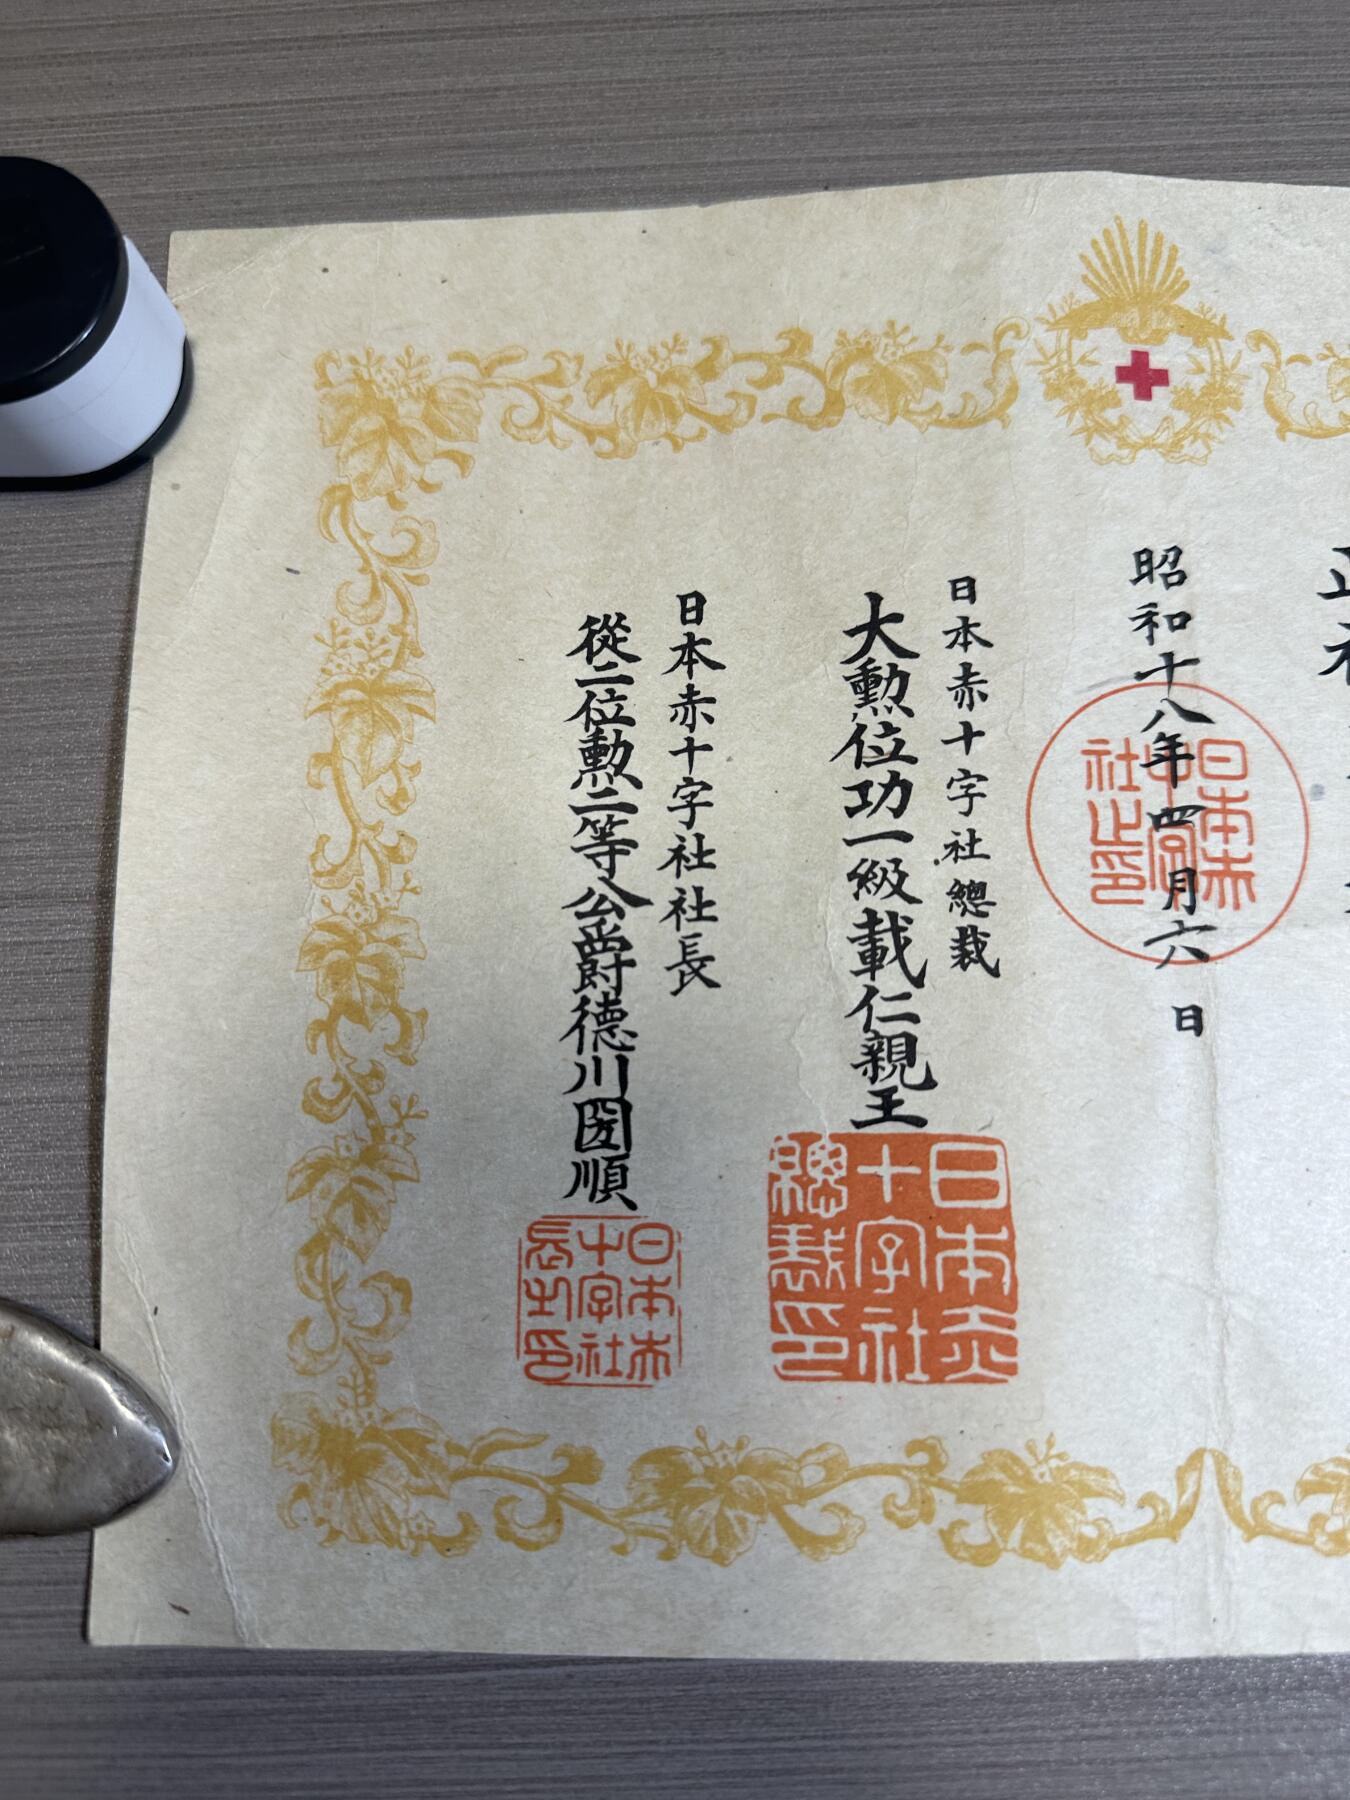 昭和十八年四月六日
日本赤十字社之印
日本赤十字社總裁
大勲位功一級載仁親王
日本赤十字社總裁印
日本赤十字社社長
從二位勲二等公爵德川圀順
日本赤十字社長之印